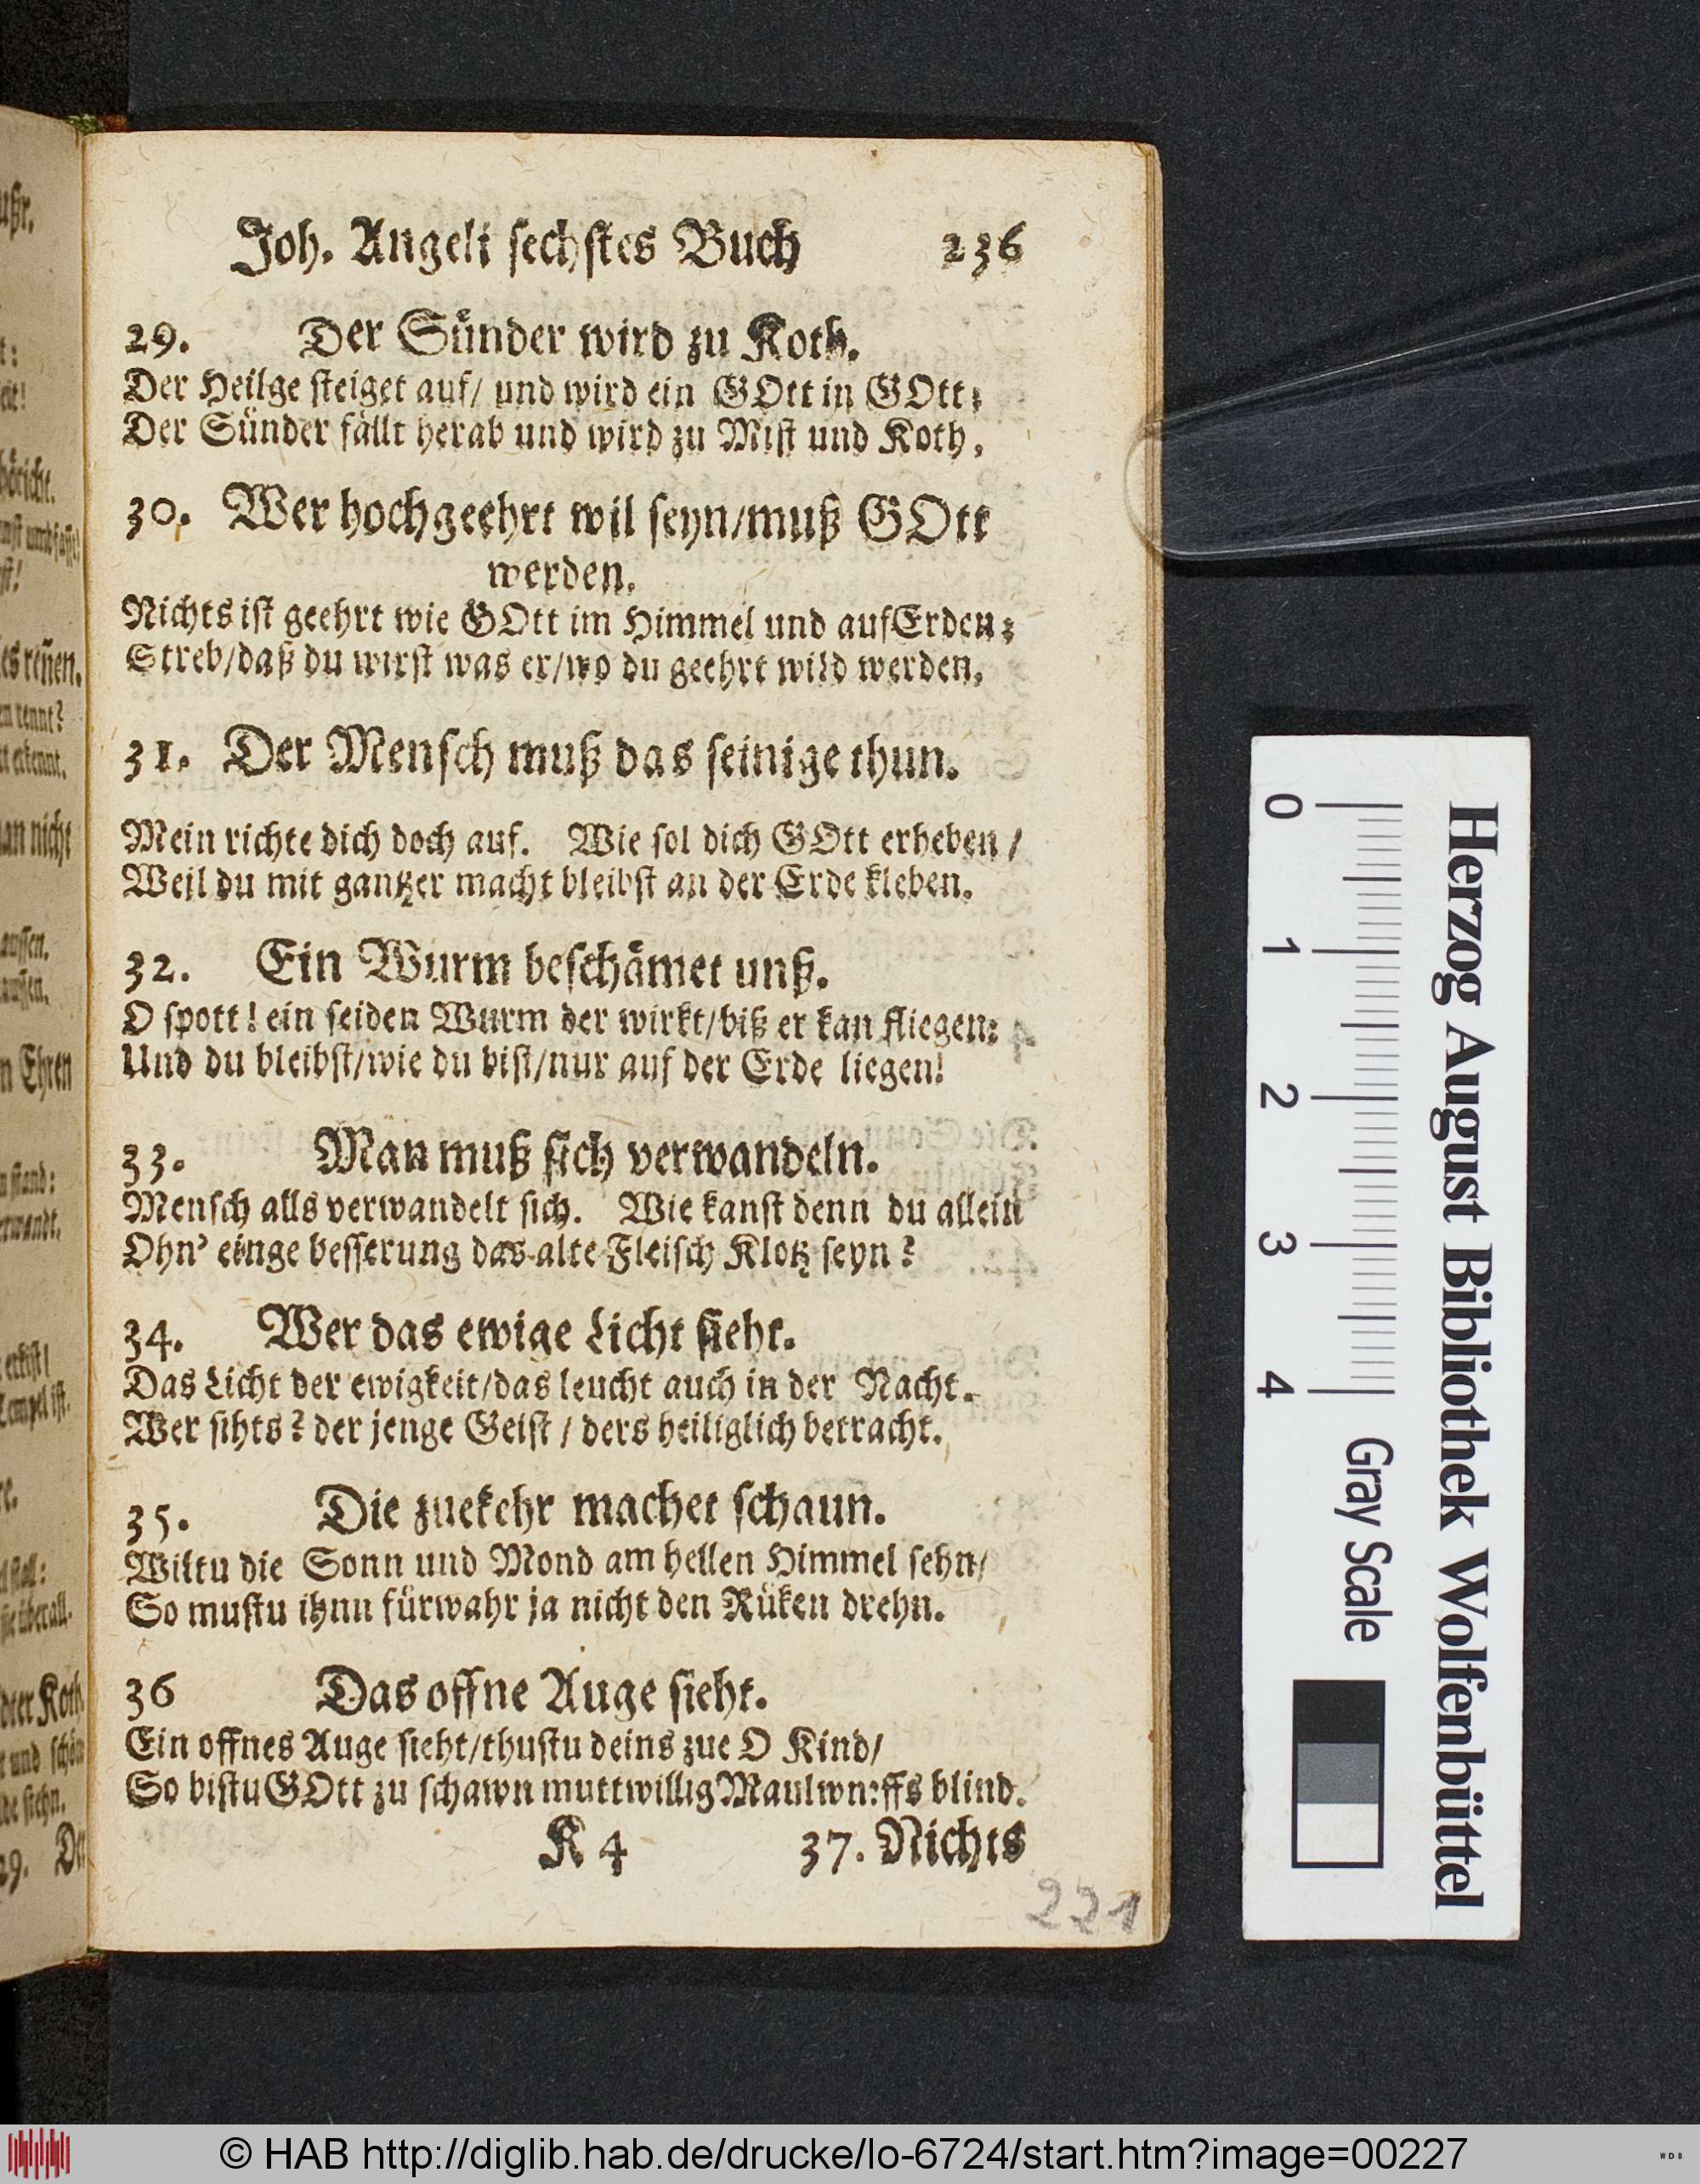 Joh. Angeli sechstes Buch 236
29. Der Sünder wird zu Koth.
Der Heilge steiget auf/ und wird ein GOtt in GOtt;
Der Sünder fällt herab und wird zu Mist und Koth.
30. Wer hochgeehrt wil seyn/muß GOtt
werden.
Nichts ist geehrt wie GOtt im Himmel und auf Erden;
Streb/daß du wirst was er/wo du geehrt wild werden.
31. Der Mensch muß das seinige thun.
Mein richte dich doch auf. Wie sol dich GOtt erheben /
Weil du mit gantzer macht bleibst an der Erde kleben.
32. Ein Wurm beschämet unß.
O spott! ein seiden Wurm der wirkt/biß er kan fliegen:
Und du bleibst/wie du bist/nur auf der Erde liegen!
33. Man muß sich verwandeln.
Mensch alls verwandelt sich. Wie kanst denn du allein
Ohn' einge besserung das alte Fleisch Klotz seyn?
34. Wer das ewige Licht sieht.
Das Licht der ewigkeit/das leucht auch in der Nacht.
Wer sihts? der jenge Geist / ders heiliglich betracht.
35. Die zuekehr machet schaun.
Wiltu die Sonn und Mond am hellen Himmel sehn/
So mustu ihnn fürwahr ja nicht den Rüken drehn.
36 Das offne Auge sieht.
Ein offnes Auge sieht/thustu deins zue O Kind/
So bistu GOtt zu schawn muttwillig Maulwurffs blind.
K 4 37. Nichts
221
Herzog August Bibliothek Wolfenbüttel
0 1 2 3 4 Gray Scale
© HAB http://diglib.hab.de/drucke/lo-6724/start.htm?image=00227